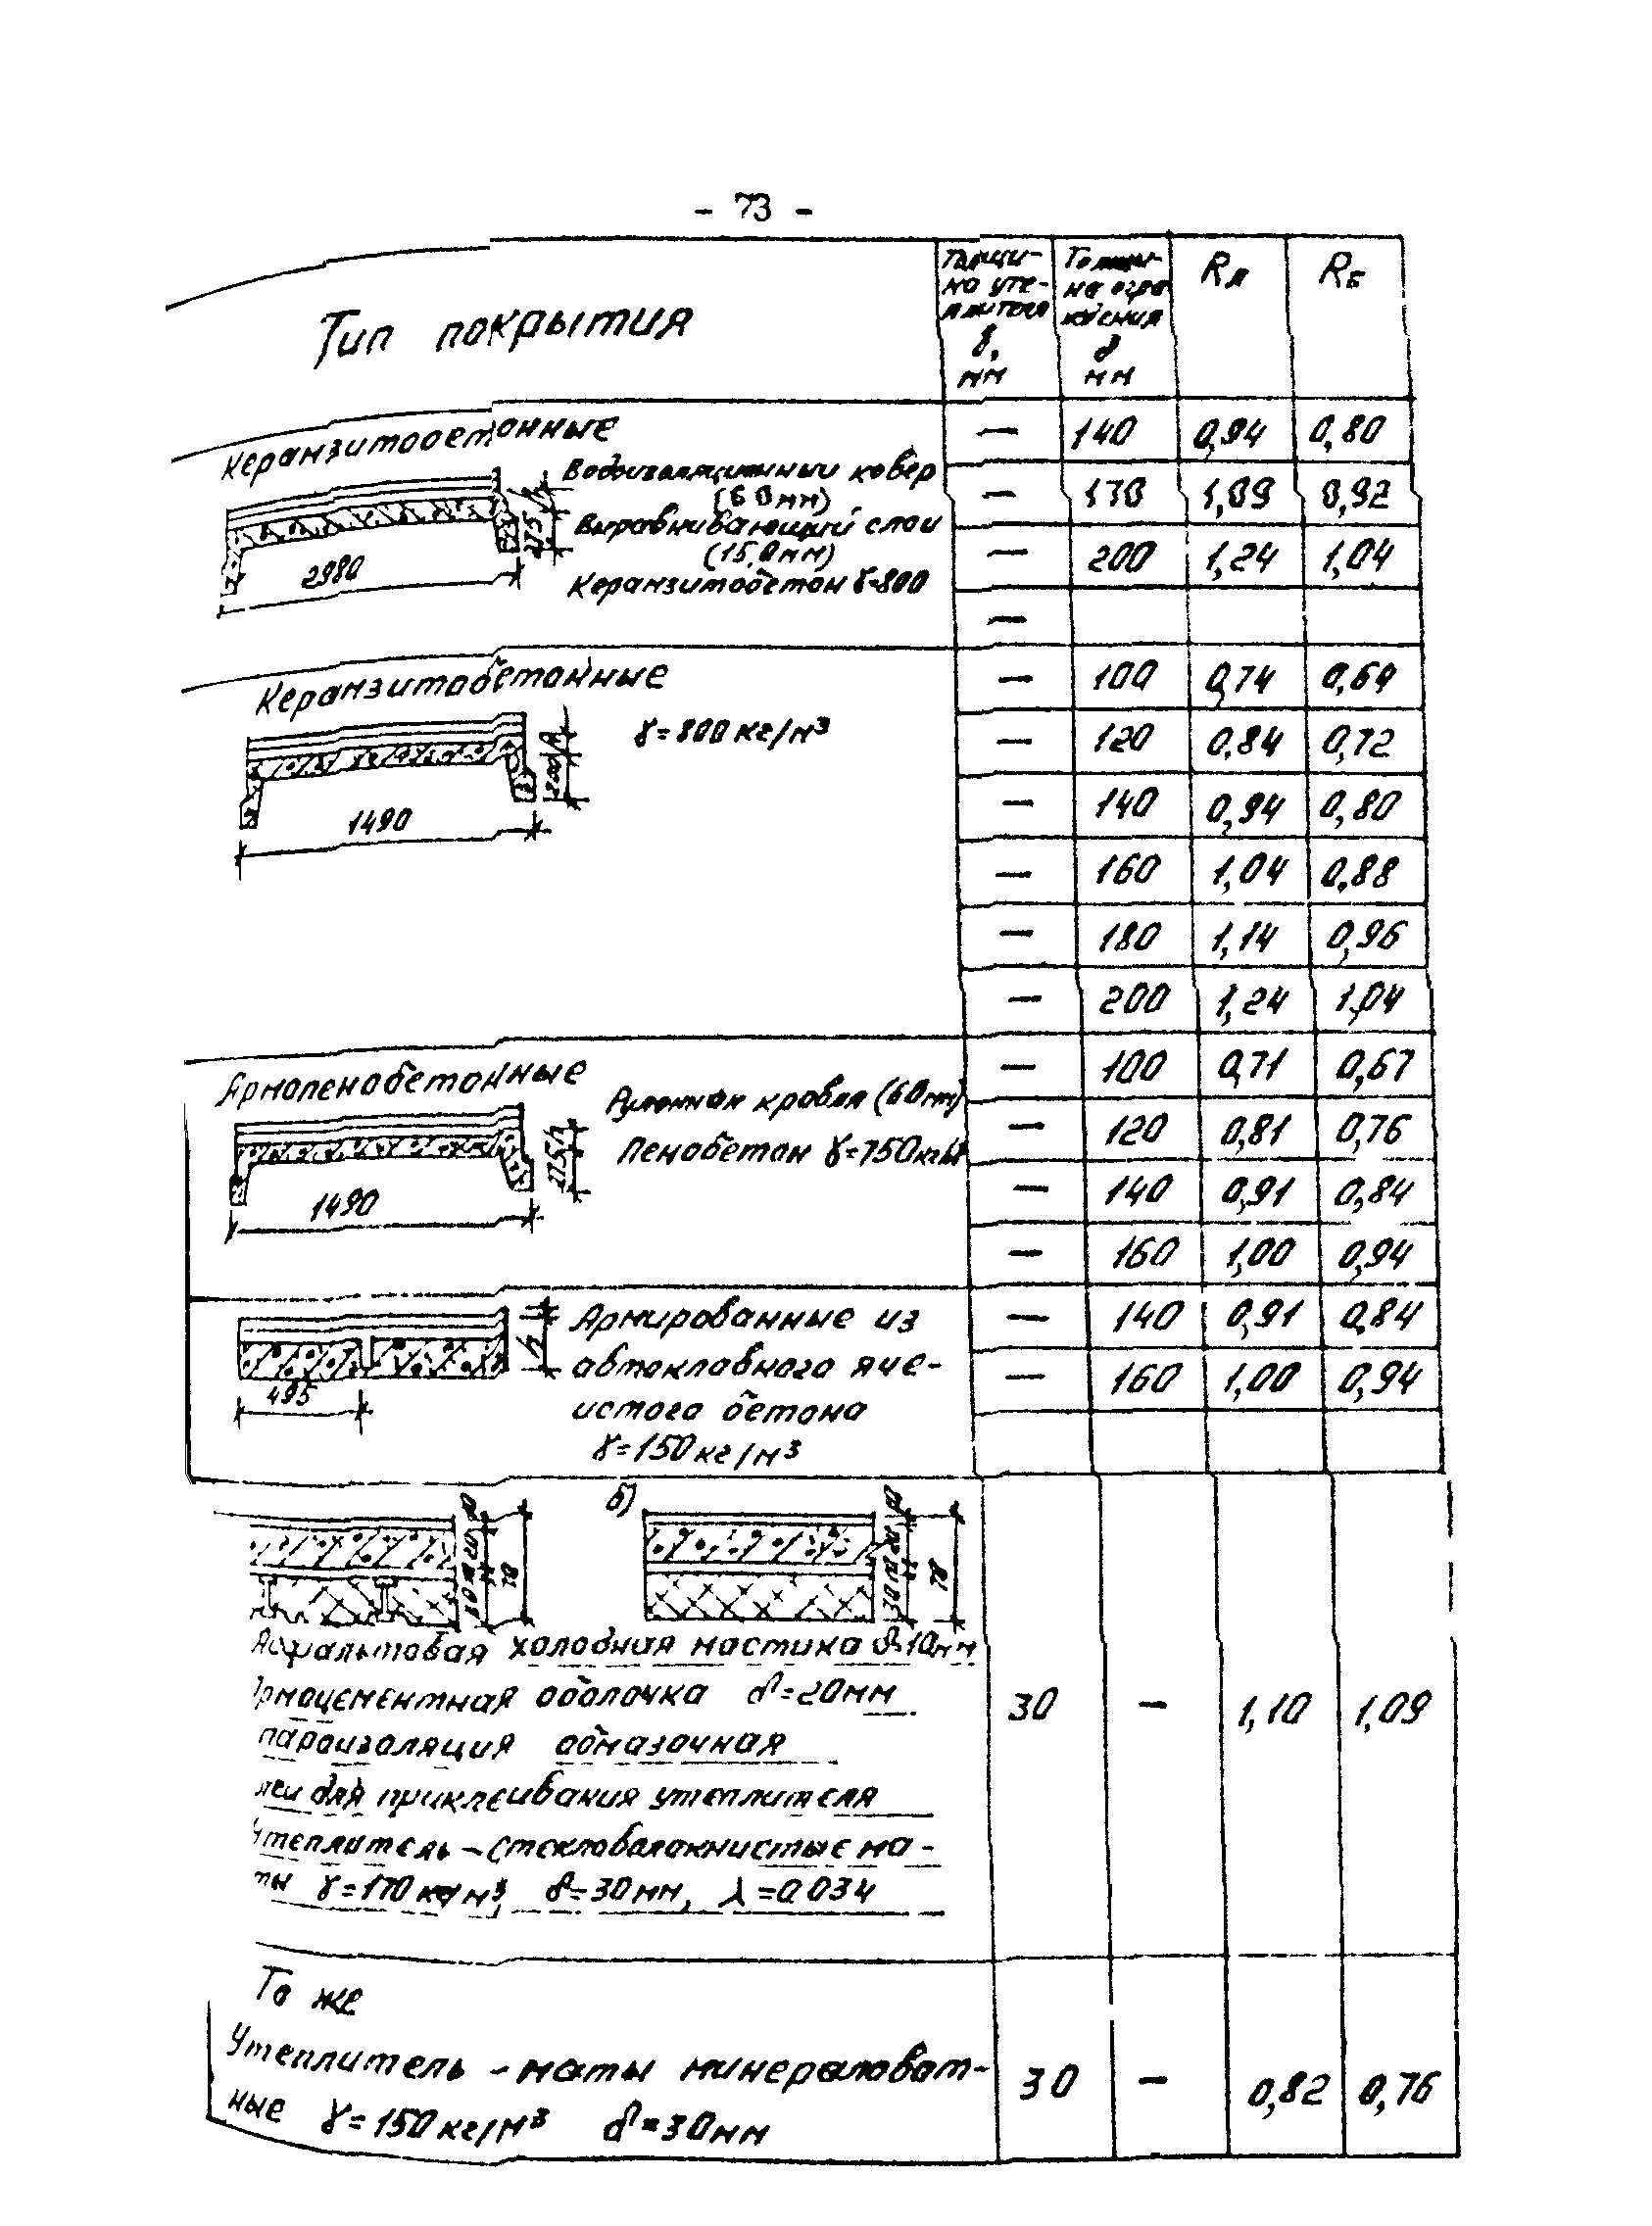 - 73 -
Тип покрытия
Толщи-
на уте-
плителя
мм
Толщи-
на огра
ждения
δ
мм
Rа
Rб
Керамзитобетонные
Водоизоляционный ковер
(6 0 мм)
Выравнивающий слой
(15,0 мм)
Керамзитобетон γ=800
2980
275 h
— 140 0,94 0,80
— 170 1,09 0,92
— 200 1,24 1,04
—
Керамзитобетонные
γ=800 кг/м³
1490
200 h
— 100 0,74 0,64
— 120 0,84 0,72
— 140 0,94 0,80
— 160 1,04 0,88
— 180 1,14 0,96
— 200 1,24 1,04
Армопенобетонные
Рулонная кровля (60мм)
Пенобетон γ=750кг/м
1490
275 h
— 100 0,71 0,67
— 120 0,81 0,76
— 140 0,91 0,84
— 160 1,00 0,94
Армированные из
автоклавного яче-
истого бетона
γ=150 кг/м³
495
h
— 140 0,91 0,84
— 160 1,00 0,94
б)
Асфальтовая холодная мастика δ=10мм
Армоцементная оболочка δ=20мм
пароизоляция обмазочная
для приклеивания утеплителя
Утеплитель – стекловолокнистые ма-
ты γ=170 кг/м³, δ=30мм, λ=0034
30 — 1,10 1,09
То же
Утеплитель – маты минераловат-
ные γ=150 кг/м³ δ=30мм
30 — 0,82 0,76